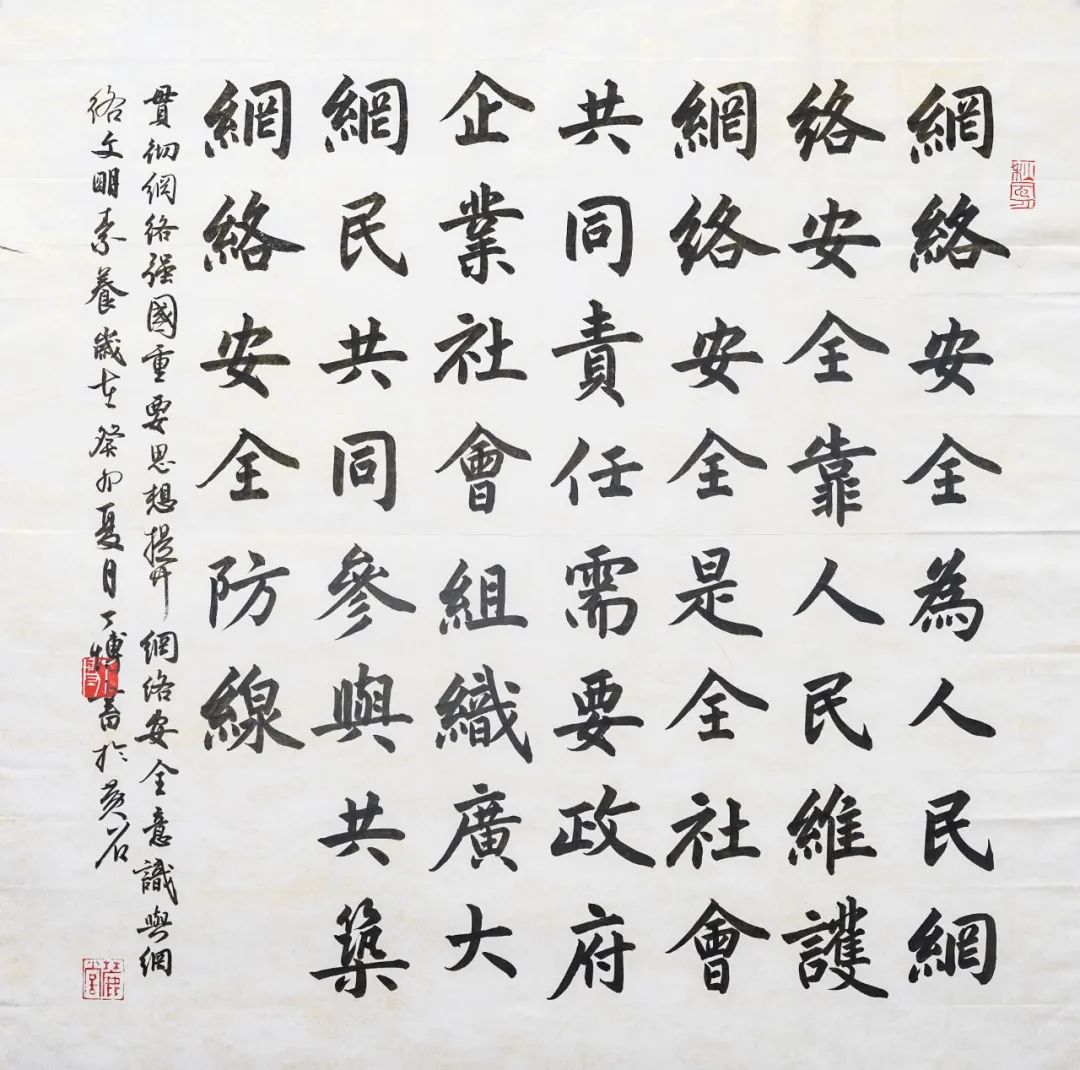 網絡安全為人民網
絡安全靠人民維護
網络安全是全社會
共同責任需要政府
企業社會組織廣大
網民共同參與共築
網絡安全防線
貫彻網络强國重要思想提升網络安全意識與網
络文明素養歲在癸卯夏月丁博書於黄石